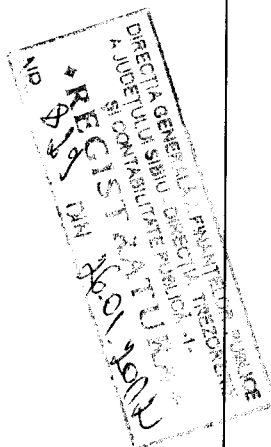 DIRECTIA GENERALA A FINANTELOR PUBLICE
A JUDETULUI SIBIU - DIRECTIA TREZORERIE
ŞI CONTABILITATE PUBLICĂ -1-
REGISTRATURA
DIN 26.01.